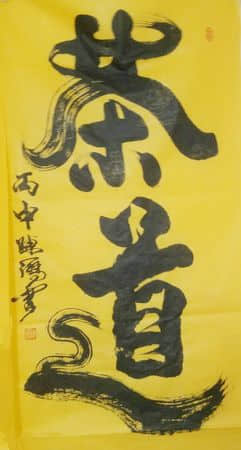 茶道
丙申
書